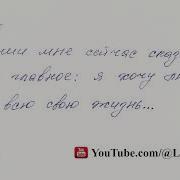 мне сейчас
главное: я хочу
всю свою жизнь...
YouTube.com/@L